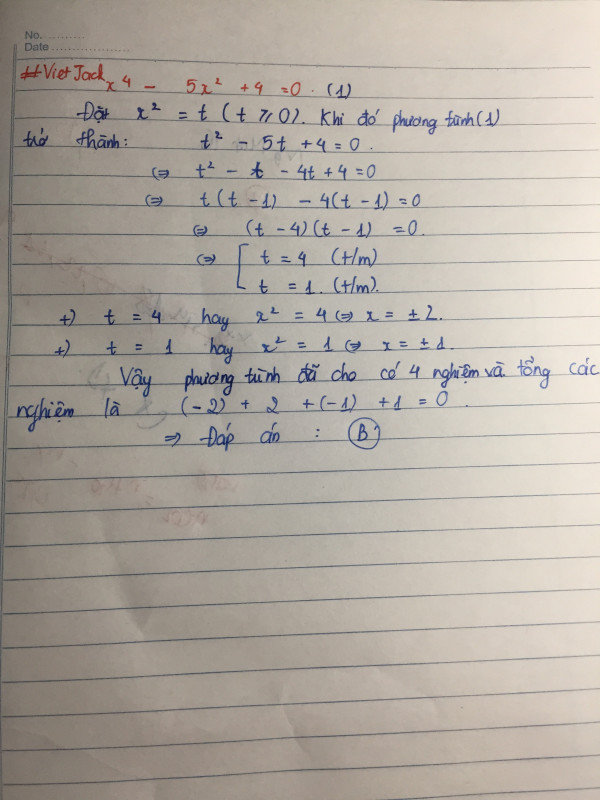 No. ..........
Date ....................
#VietJack x⁴ - 5x² + 4 = 0. (1)
Đặt x² = t (t ≥ 0). Khi đó phương trình (1)
trở thành: t² - 5t + 4 = 0.
⇔ t² - t - 4t + 4 = 0
⇔ t(t - 1) - 4(t - 1) = 0
⇔ (t - 4)(t - 1) = 0.
⇔ [ t = 4 (t/m)
t = 1. (t/m).
+) t = 4 hay x² = 4 ⇔ x = ± 2.
+) t = 1 hay x² = 1 ⇔ x = ± 1.
Vậy phương trình đã cho có 4 nghiệm và tổng các
nghiệm là (-2) + 2 + (-1) + 1 = 0.
⇒ Đáp án : B